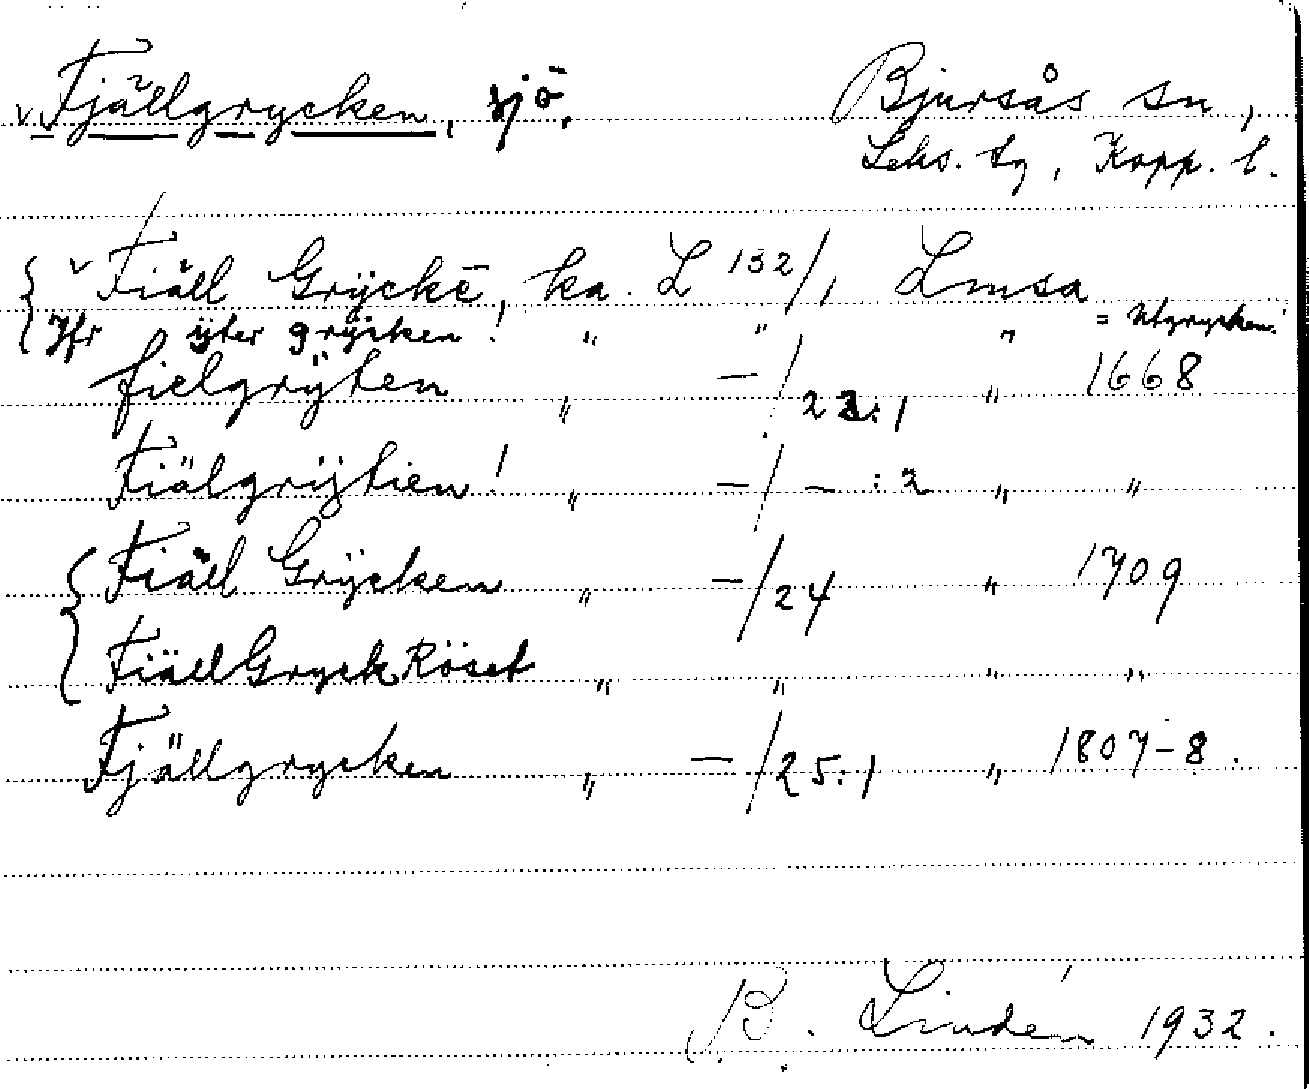 v Fjällgrycken, sjö.
Bjursås sn,
Leks. tg, Kopp. l.
v Fiäll Grÿckē, ka. L 132/1 Lmsa
Jfr ÿter grÿcken! " " " = Utgrycken!
fielgrÿten " —/23:1 " 1668
Fiälgrÿtien! " —/—:2 " "
Fiäll Grÿcken " —/24 " 1709
FiällGryckRöset " " " "
Fjällgrycken " —/25:1 " 1807-8.
B. Lindén 1932.